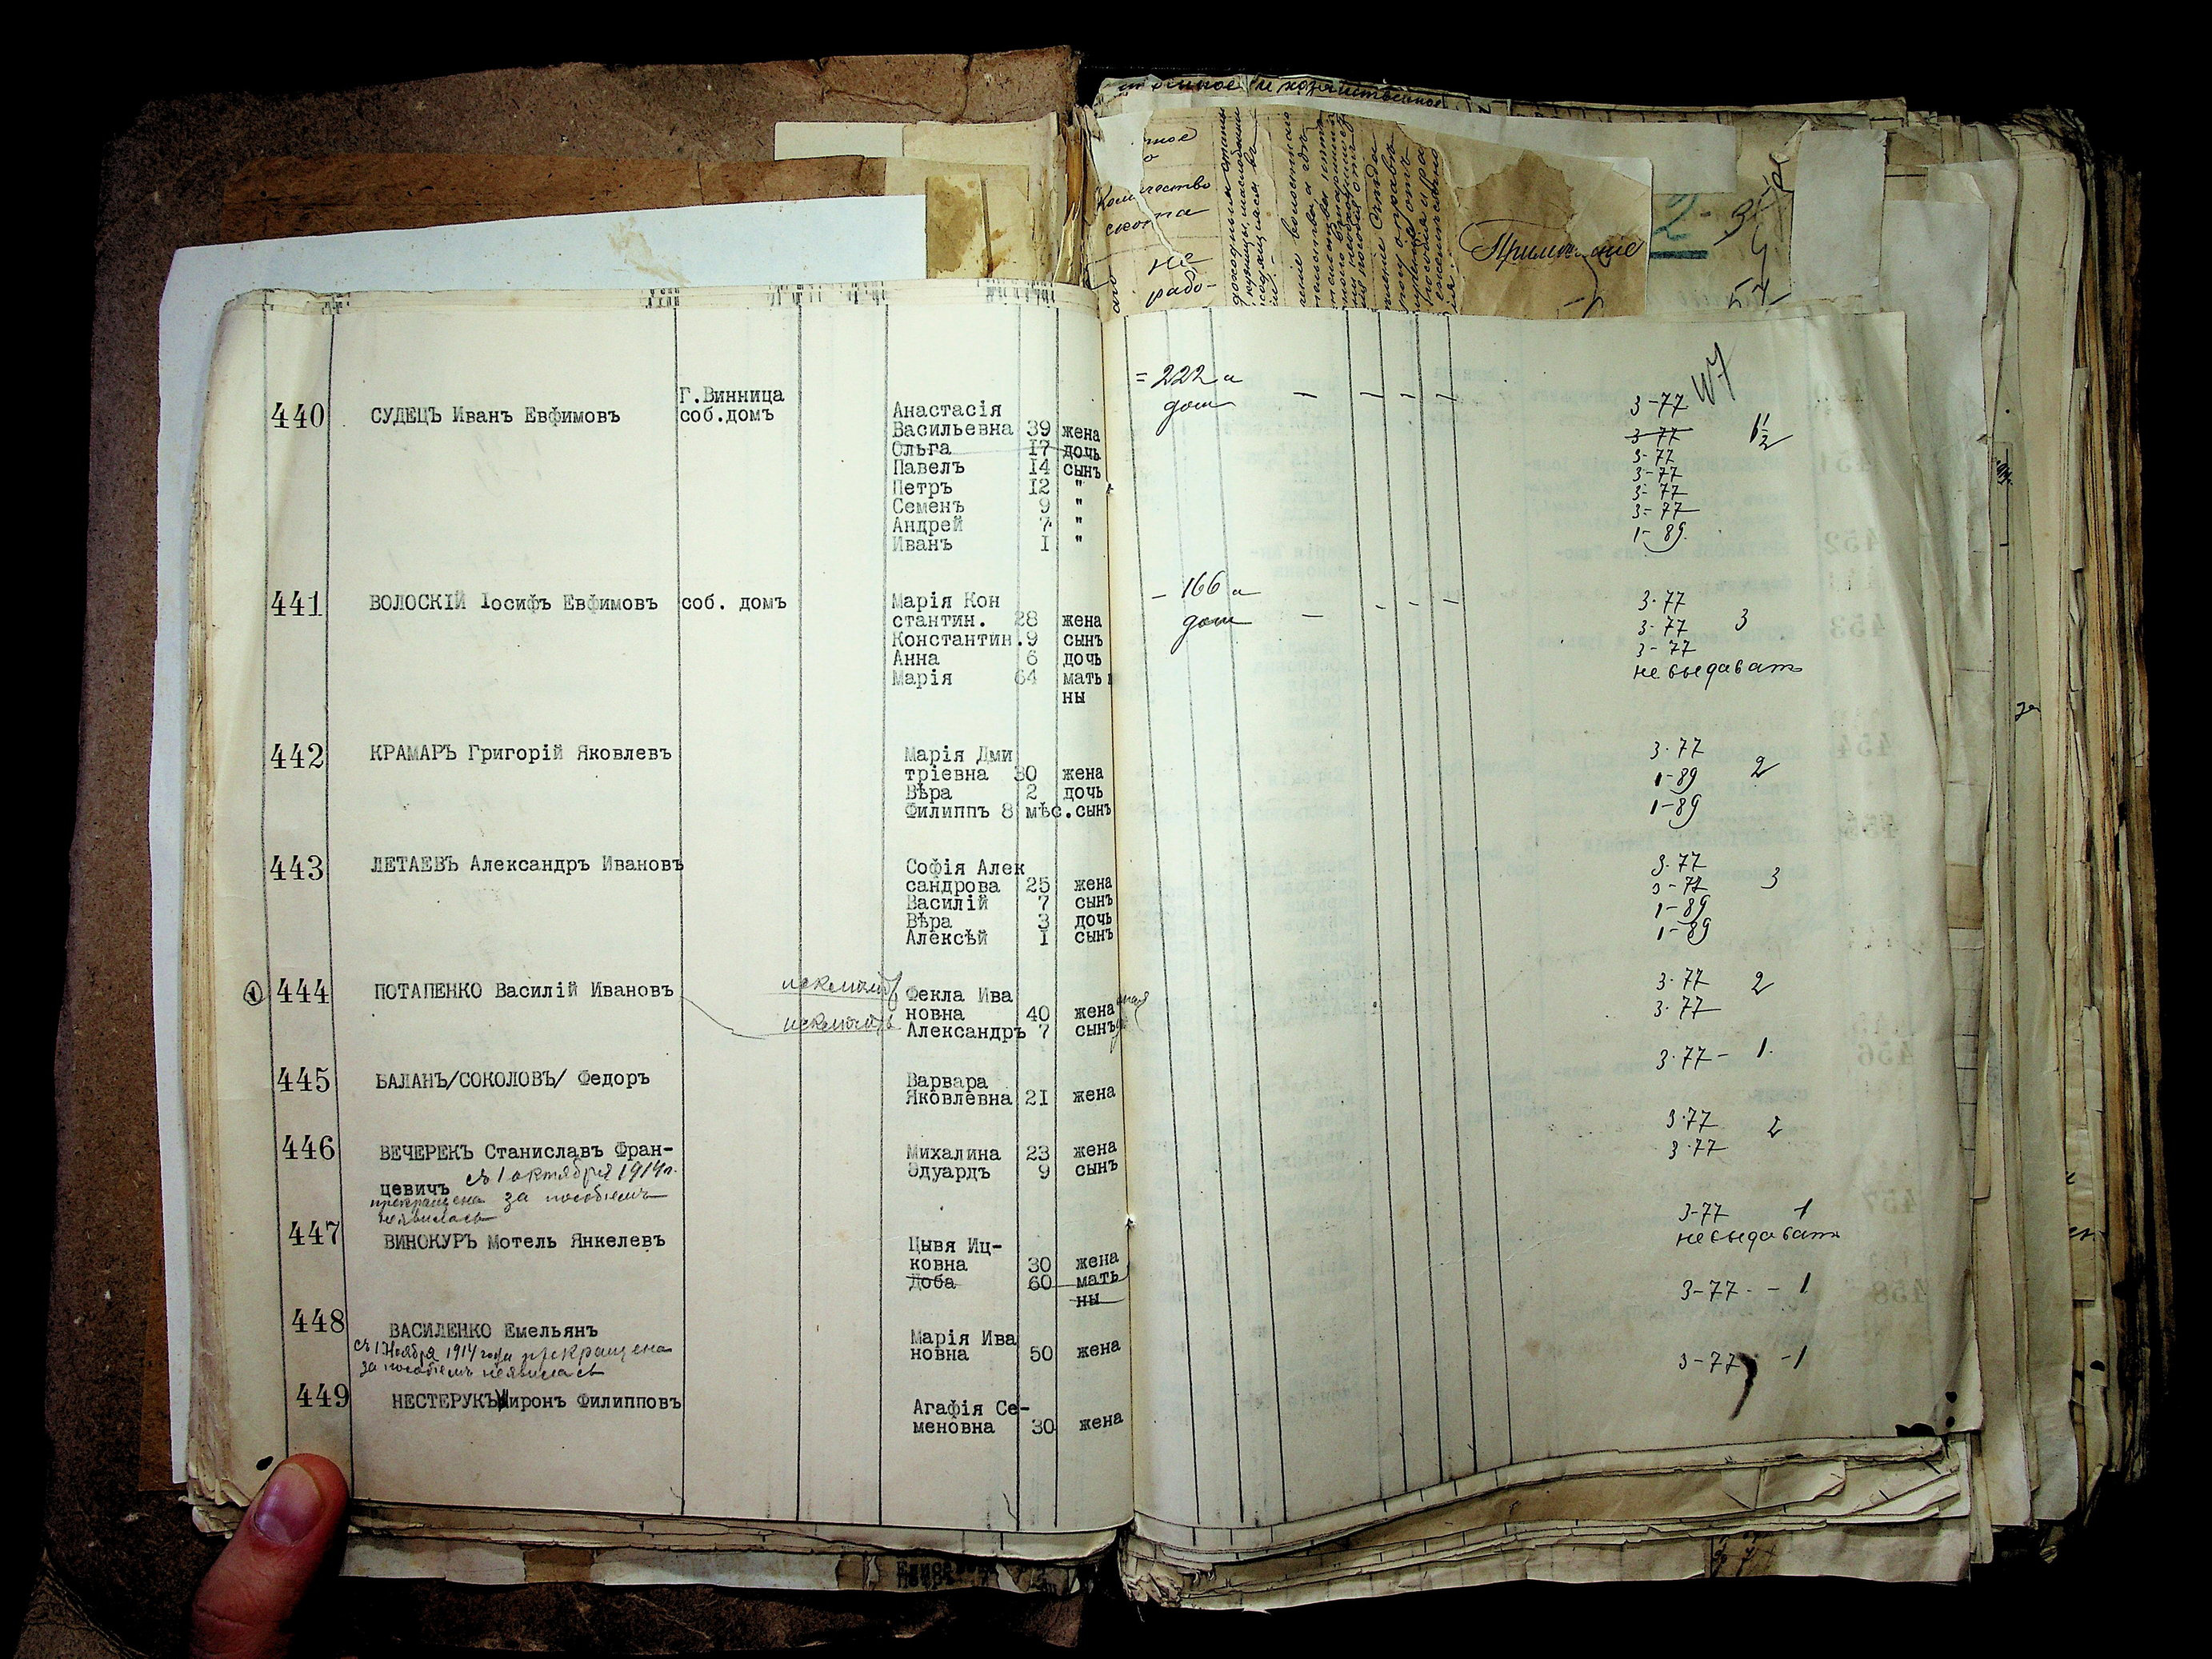 Количество
скота
не
радо-
Примечание
440 СУДЕЦЪ Иванъ Евфимовъ
Г.Винница
соб.домъ
Анастасія
Васильевна 39 жена
Ольга 17 дочь
Павелъ 14 сынъ
Петръ 12 "
Семенъ 9 "
Андрей 7 "
Иванъ I "
= 222 а
дом — — — —
3-77
3-77 1½
3-77
3-77
3-77
3-77
1-89.
441 ВОЛОСКІЙ Іосифъ Евфимовъ соб. домъ
Марія Кон
стантин. 28 жена
Константин.9 сынъ
Анна 6 дочь
Марія 64 мать
ны
– 166 а
дом — - - —
3-77
3-77 3
3-77
не выдавать
442 КРАМАРЪ Григорій Яковлевъ
Марія Дми
тріевна 30 жена
Вѣра 2 дочь
Филиппъ 8 мѣс.сынъ
3-77
1-89 2
1-89
443 ЛЕТАЕВЪ Александръ Ивановъ
Софія Алек
сандрова 25 жена
Василій 7 сынъ
Вѣра 3 дочь
Алексѣй I сынъ
3-77
3-77 3
1-89
1-89
1 444 ПОТАПЕНКО Василій Ивановъ
исключить
исключить
Фекла Ива
новна 40 жена
Александръ 7 сынъ
3-77 2
3-77
445 БАЛАНЪ/СОКОЛОВЪ/ Федоръ
Варвара
Яковлевна 21 жена
3-77 - 1.
446 ВЕЧЕРЕКЪ Станиславъ Фран-
цевичъ съ 1 октября 1914 г.
прекращена за пособіемъ
неявилась
Михалина 23 жена
Эдуардъ 9 сынъ
3-77 2
3-77
447 ВИНОКУРЪ Мотель Янкелевъ
Цывя Иц-
ковна 30 жена
Доба 60 мать
ны
3-77 1
не выдавать
448 ВАСИЛЕНКО Емельянъ
съ 1 Ноября 1914 года прекращена
за пособіемъ неявилась
Марія Ива
новна 50 жена
3-77 - 1
449 НЕСТЕРУКЪ Миронъ Филипповъ
Агафія Се-
меновна 30 жена
3-77 -1